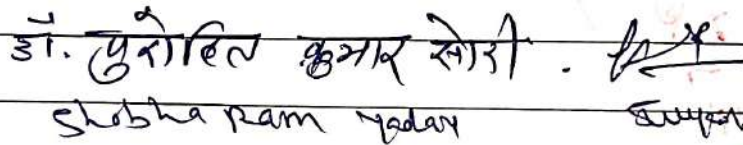 डॉ. पुरोहित कुमार सोरी .
Shobha Ram Yadav